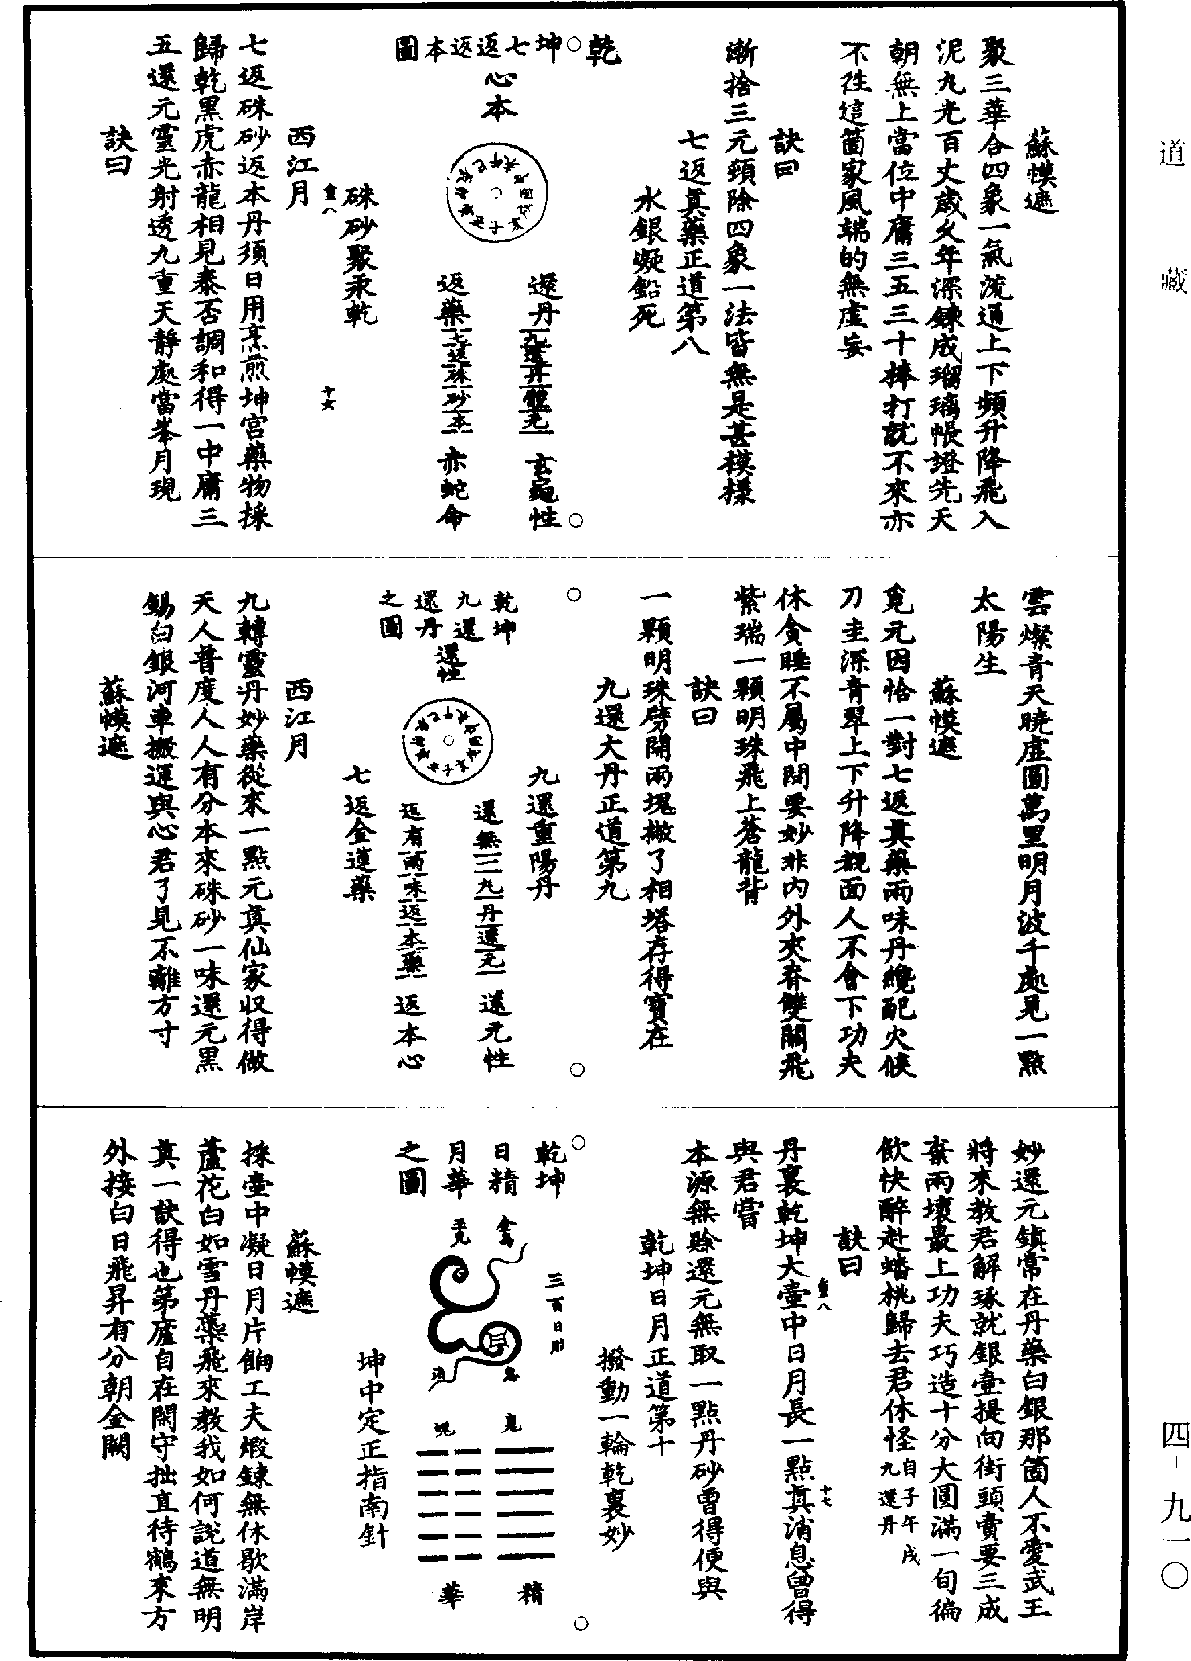 道藏
蘇幙遮
聚三華合四象一氣流通上下頻升降飛入
泥丸光百丈歲久年深鍊成瑠璃帳證先天
朝無上當位中庸三五三十棒打訖不來亦
不徃這箇家風端的無虛妄
訣曰
漸捨三元頸除四象一法皆無是甚模樣
七返真藥正道第八
水銀凝鉛死
乾
坤七返返本圖
心本
還丹
九還丹體元
玄龜性
返藥
七返硃砂本
赤蛇命
硃砂聚汞乾
重八
十六
西江月
七返硃砂返本丹須日用烹煎坤宮藥物採
歸乾黑虎赤龍相見泰否調和得一中庸三
五還元靈光射透九重天靜處當峯月現
訣曰
雲燦青天曉虛圓萬里明月波千處見一點
太陽生
蘇幙遮
覓元因恰一對七返真藥兩味丹纔配火候
刀圭深青翠上下升降覿面人不會下功夫
休貪睡不屬中間要妙非內外夾脊雙關飛
紫瑞一顆明珠飛上蒼龍背
訣曰
一顆明珠劈開兩塊撇了相塔存得寶在
九還大丹正道第九
九還重陽丹
乾坤
九還
還丹
之圖
還性
還無
二九丹還元
還元性
返有
兩味返本藥
返本心
七返金蓮藥
西江月
九轉靈丹妙藥從來一點元真仙家収得做
天人普度人人有分本來硃砂一味還元黑
錫白銀河車搬運與心君了見不離方寸
蘇幙遮
妙還元鎮常在丹藥白銀那箇人不愛武王
將來教君解琢就銀壺提向街頭賣要三成
棄兩壞最上功夫巧造十分大圓滿一旬徧
飲快醉赴蟠桃歸去君休怪自子午戌九還丹
訣曰
重八
十七
丹裏乾坤大壺中日月長一點真消息曾得
與君嘗
本源無賒還元無取一點丹砂曾得便與
乾坤日月正道第十
撥動一輪乾裏妙
乾坤
日精
月華
之圖
三百日用
金烏
玉兔
魂
精
華
坤中定正指南針
蘇幙遮
採壺中凝日月片餉工夫煅鍊無休歇滿岸
蘆花白如雪丹藥飛來教我如何說道無明
真一訣得也第產自在閑守拙直待鶴來方
外接白日飛昇有分朝金闕
四－九一〇